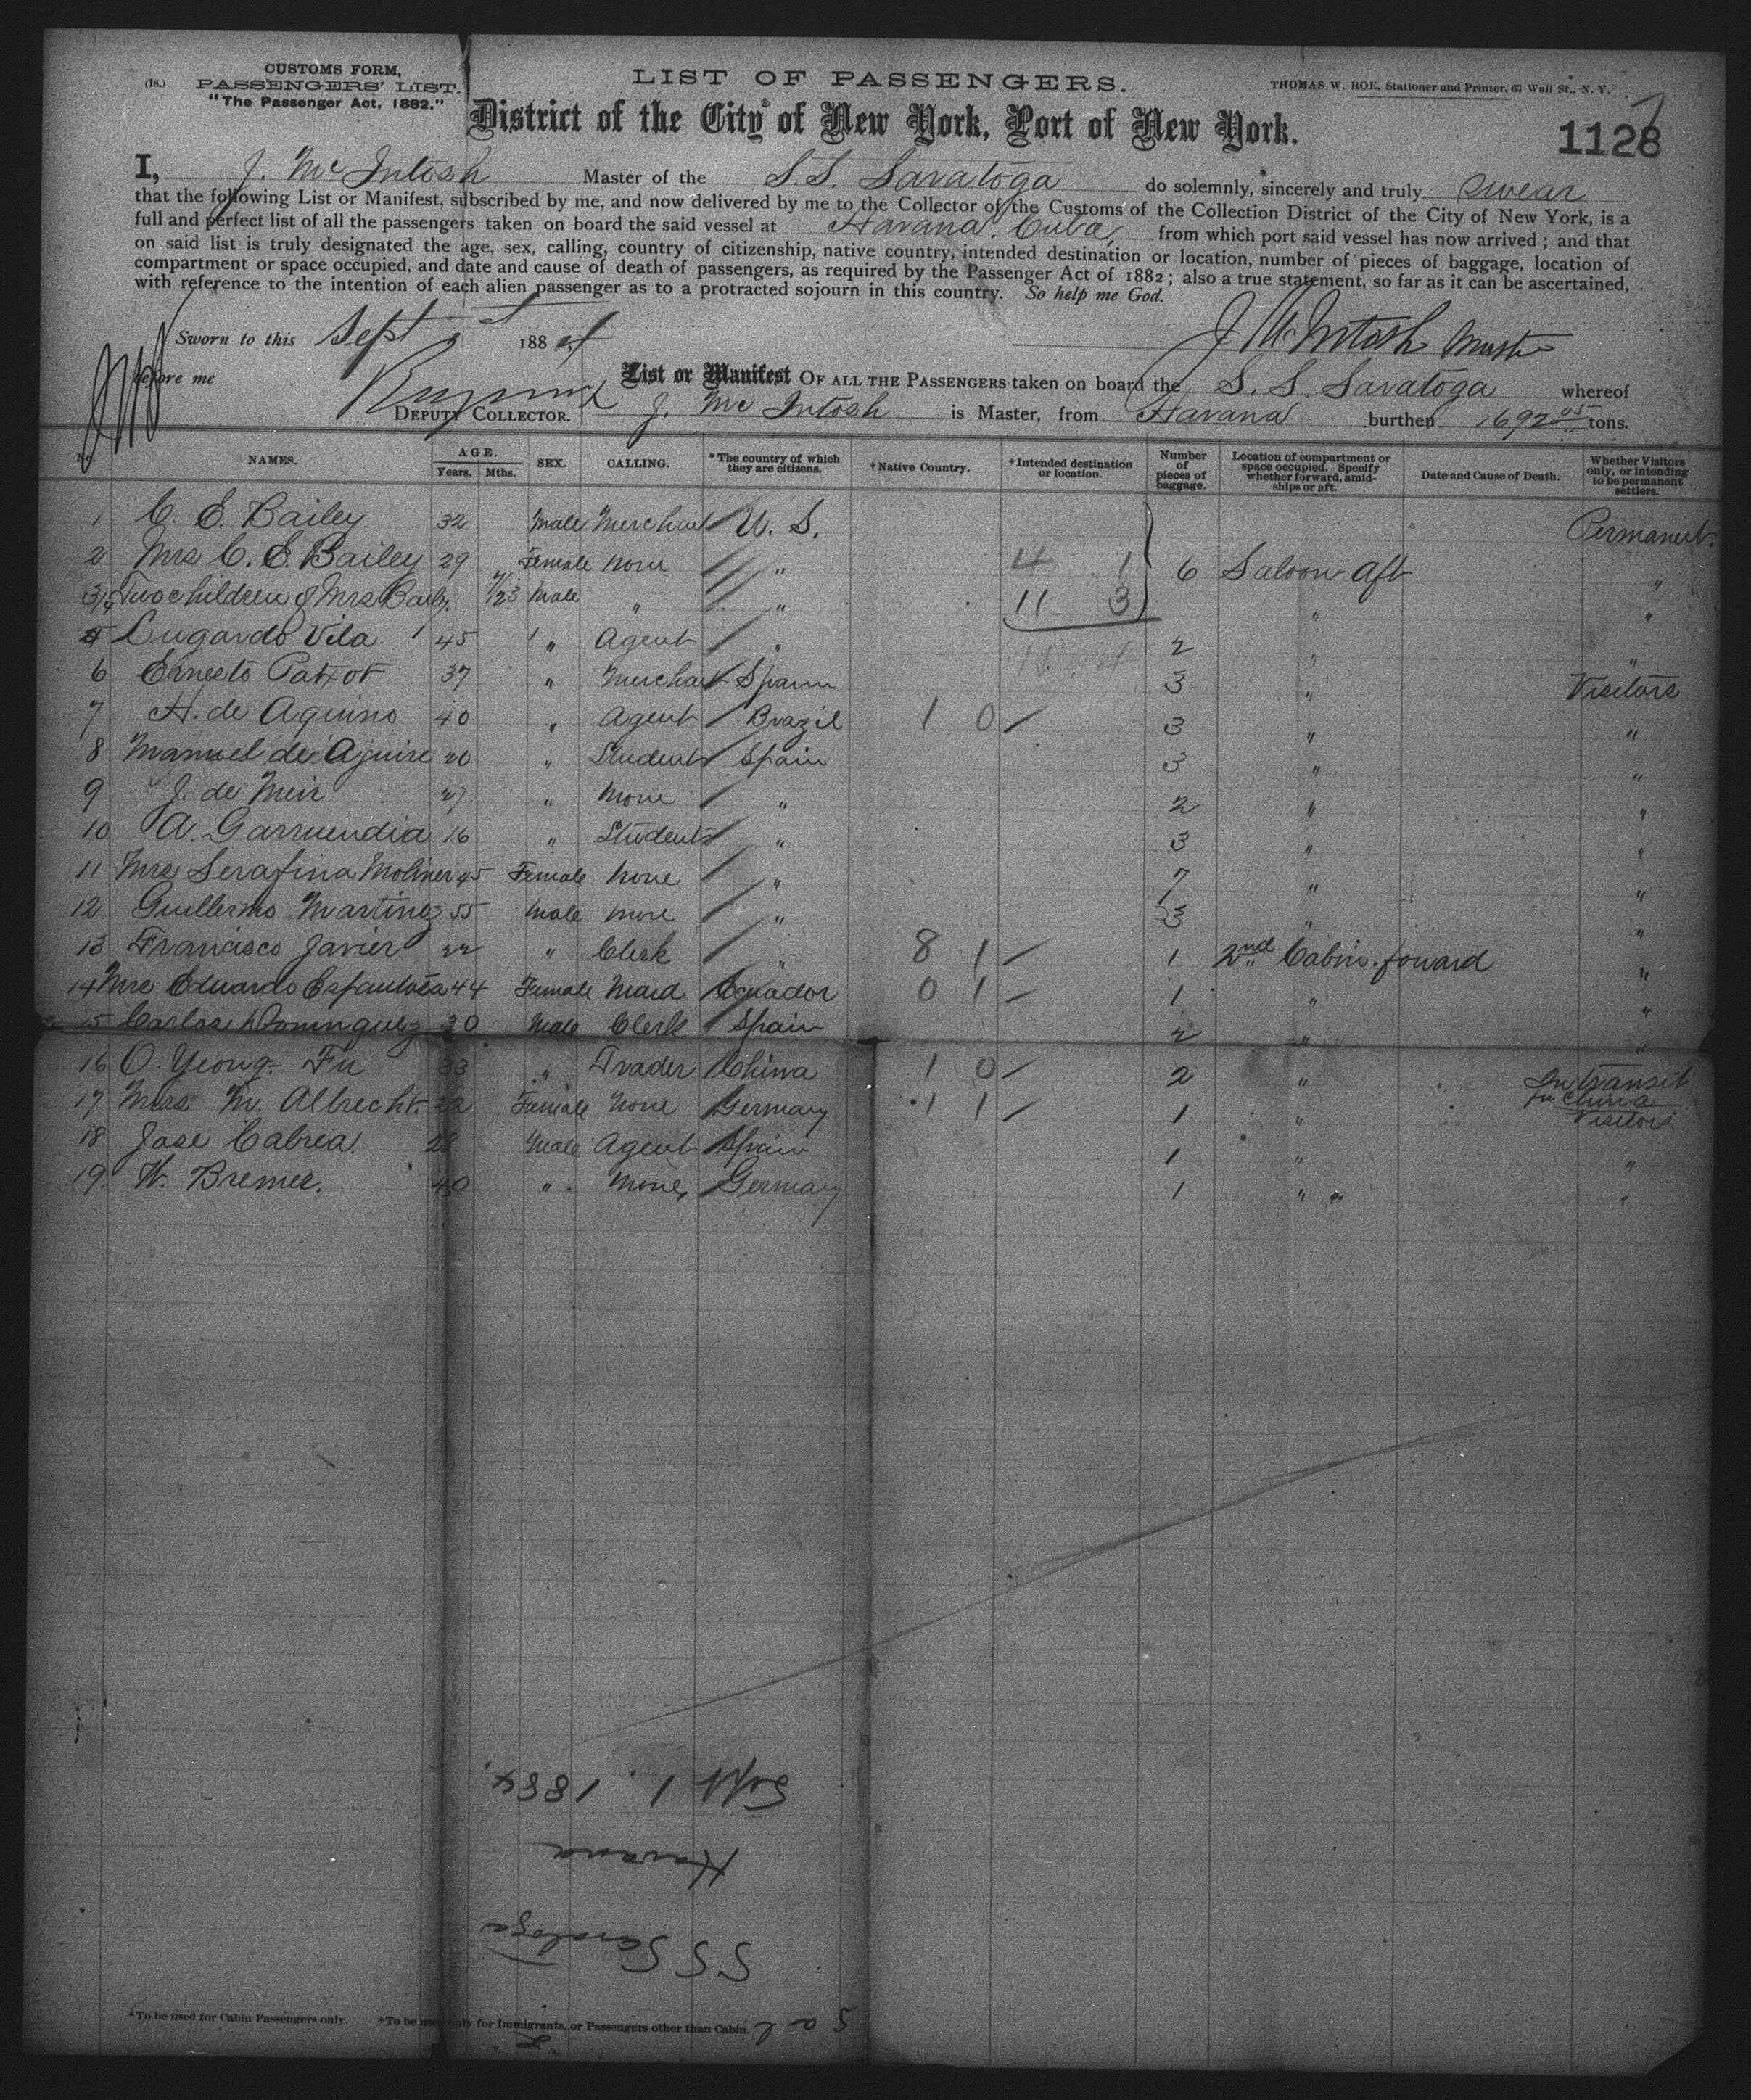 (18.) CUSTOMS FORM,
PASSENGERS' LIST.
"The Passenger Act, 1882."
LIST OF PASSENGERS.
THOMAS W. ROE, Stationer and Printer, 67 Wall St., N. Y.
District of the City of New York, Port of New York.
1128 7
I, J. McIntosh Master of the S.S. Saratoga do solemnly, sincerely and truly swear
that the following List or Manifest, subscribed by me, and now delivered by me to the Collector of the Customs of the Collection District of the City of New York, is a
full and perfect list of all the passengers taken on board the said vessel at Havana. Cuba, from which port said vessel has now arrived ; and that
on said list is truly designated the age, sex, calling, country of citizenship, native country, intended destination or location, number of pieces of baggage, location of
compartment or space occupied, and date and cause of death of passengers, as required by the Passenger Act of 1882 ; also a true statement, so far as it can be ascertained,
with reference to the intention of each alien passenger as to a protracted sojourn in this country. So help me God.
Sworn to this Sept 1st 1884
J McIntosh Master
before me
DEPUTY COLLECTOR.
List or Manifest OF ALL THE PASSENGERS taken on board the S. S. Saratoga whereof
J. McIntosh is Master, from Havana burthen 1692 05 tons.
No. NAMES. AGE. Years. Mths. SEX. CALLING. *The country of which they are citizens. †Native Country. †Intended destination or location. Number of pieces of baggage. Location of compartment or space occupied. Specify whether forward, amidships or aft. Date and Cause of Death. Whether Visitors only, or intending to be permanent settlers.
1 C. E. Bailey 32 Male Merchant U. S. Permanent.
2 Mrs C. E. Bailey 29 Female None " 4 1 6 Saloon Aft "
3/4 Two children of Mrs Baily. Male " " 11 3 " "
5 Lugardo Vila 45 " Agent " 2 " "
6 Ernesto Patxot 37 " Merchant Spain 3 " Visitors
7 H. de Aquino 40 " Agent Brazil 1 0 3 " "
8 Manuel de Ajuire 20 " Student Spain 3 " "
9 J. de Meir 27 " None " 2 " "
10 A. Garmendia 16 " Student " 3 " "
11 Mrs Serafina Moliner 45 Female None " 7 " "
12 Guillermo Martinez 55 Male None " 3 " "
13 Francisco Javier 22 " Clerk " 8 1 1 2nd Cabin. foward "
14 Mrs Eduardo 44 Female Maid Ecuador 0 1 1 " "
15 Carlos Dominguez 30 Male Clerk Spain 2 " "
16 O. Yeong Fu 33 " Trader China 1 0 2 " In transit to China
17 Miss M. Albrecht. 22 Female None Germany 1 1 1 " Visitors
18 Jose Cabrea. 28 Male Agent Spain 1 " "
19. W. Bremer. 40 " None, Germany 1 " "
Sept 1. 1884.
Havana
S S Saratoga
*To be used for Cabin Passengers only. †To be used only for Immigrants, or Passengers other than Cabin.